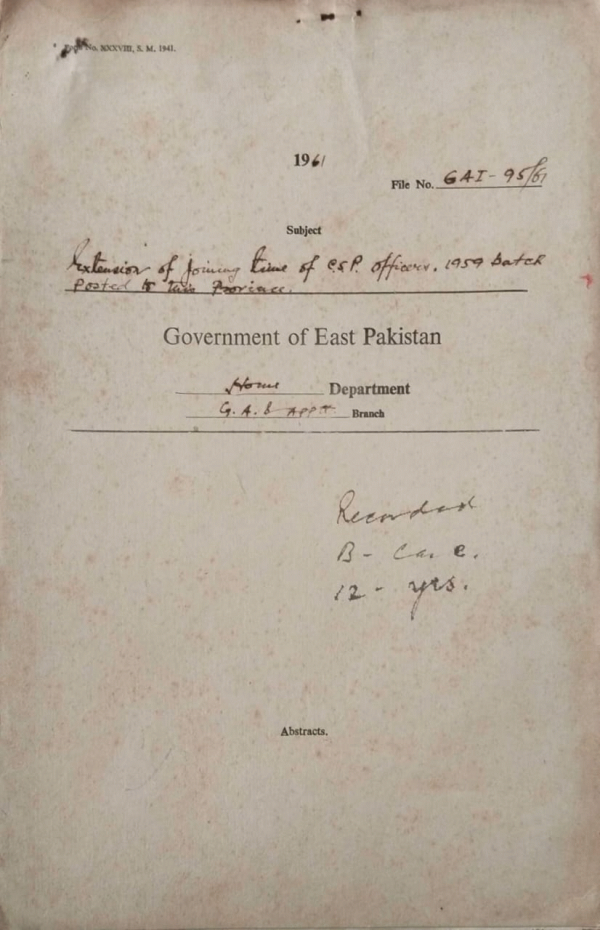 No. XXXVIII, S. M. 1941.
1961
File No. GAI - 95/61
Subject
Extension of joining time of C.S.P. officers, 1959 Batch
Posted to this Province.
Government of East Pakistan
Home Department
G. A. & Apptt Branch
Recorded
B -
12 - yrs.
Abstracts.